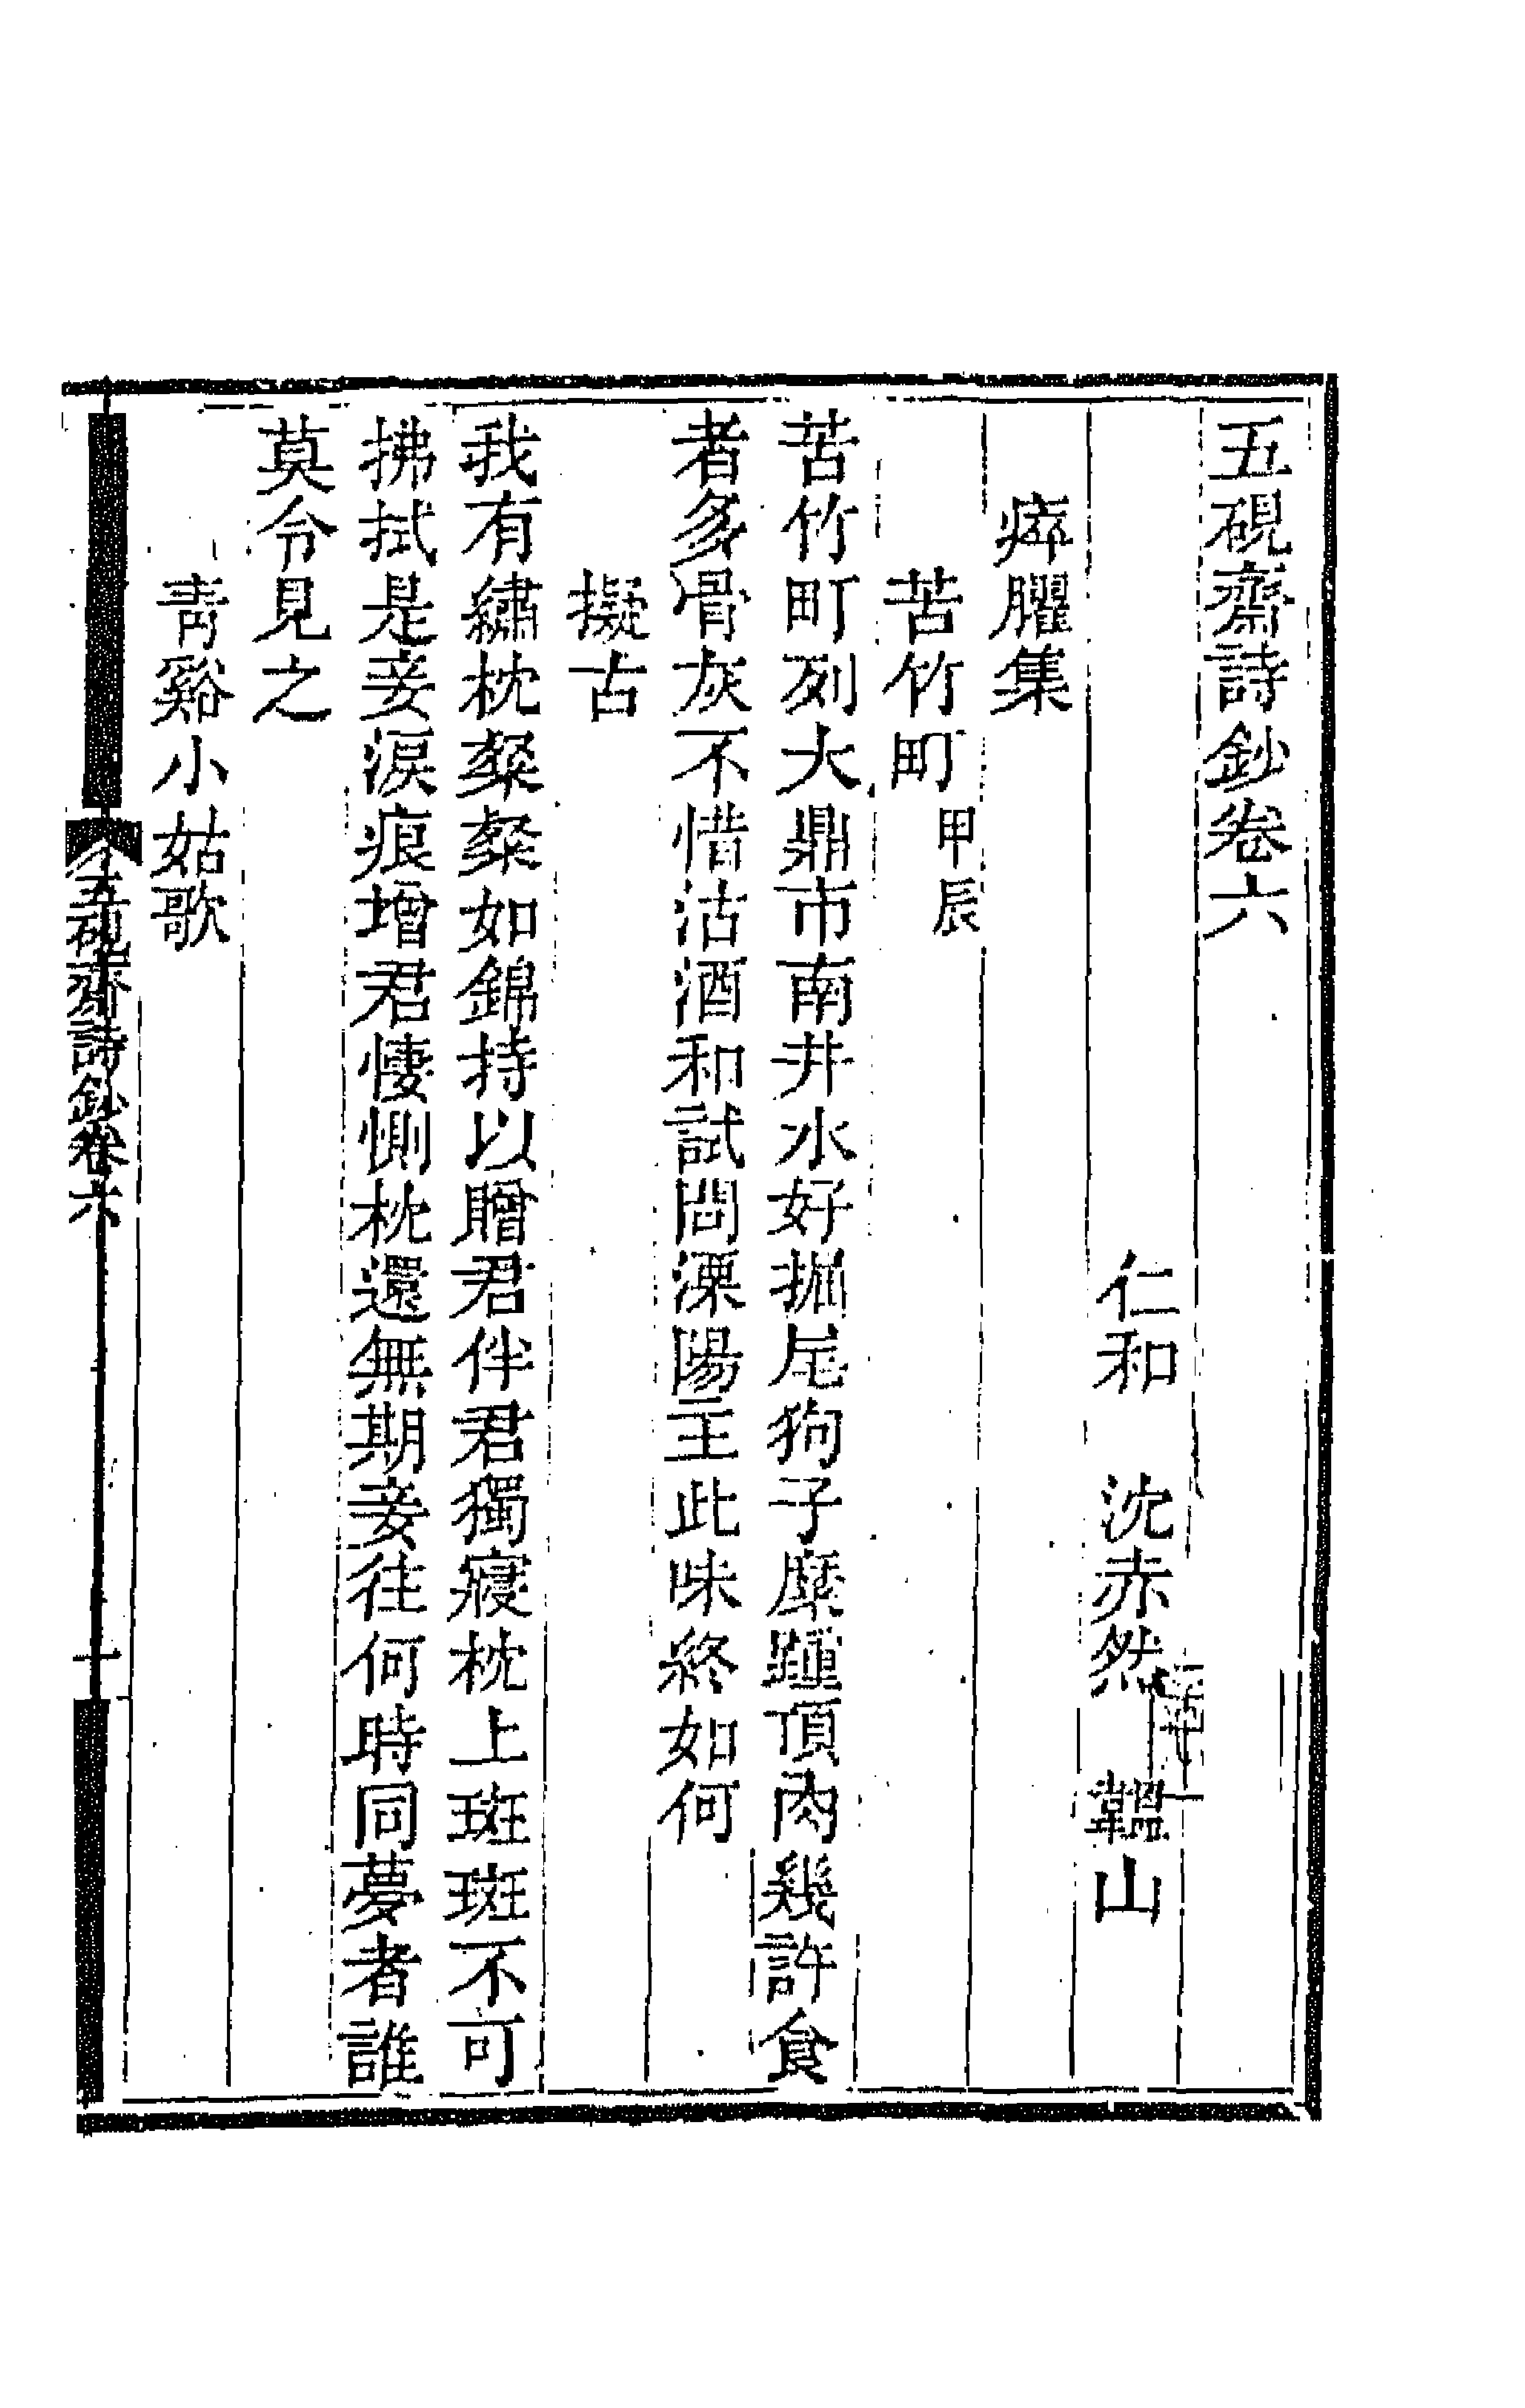 五硯齋詩鈔卷六
仁和 沈赤然 韞山
瘁臞集
苦竹町 甲辰
苦竹町列大鼎市南井水好掘尾狗子糜踵頂肉幾許食
者多骨灰不惜沽酒和試問溧陽主此味終如何
擬古
我有繡枕粲粲如錦持以贈君伴君獨寢枕上斑斑不可
拂拭是妾淚痕增君悽惻枕還無期妾往何時同夢者誰
莫令見之
青谿小姑歌
五硯齋詩鈔卷六